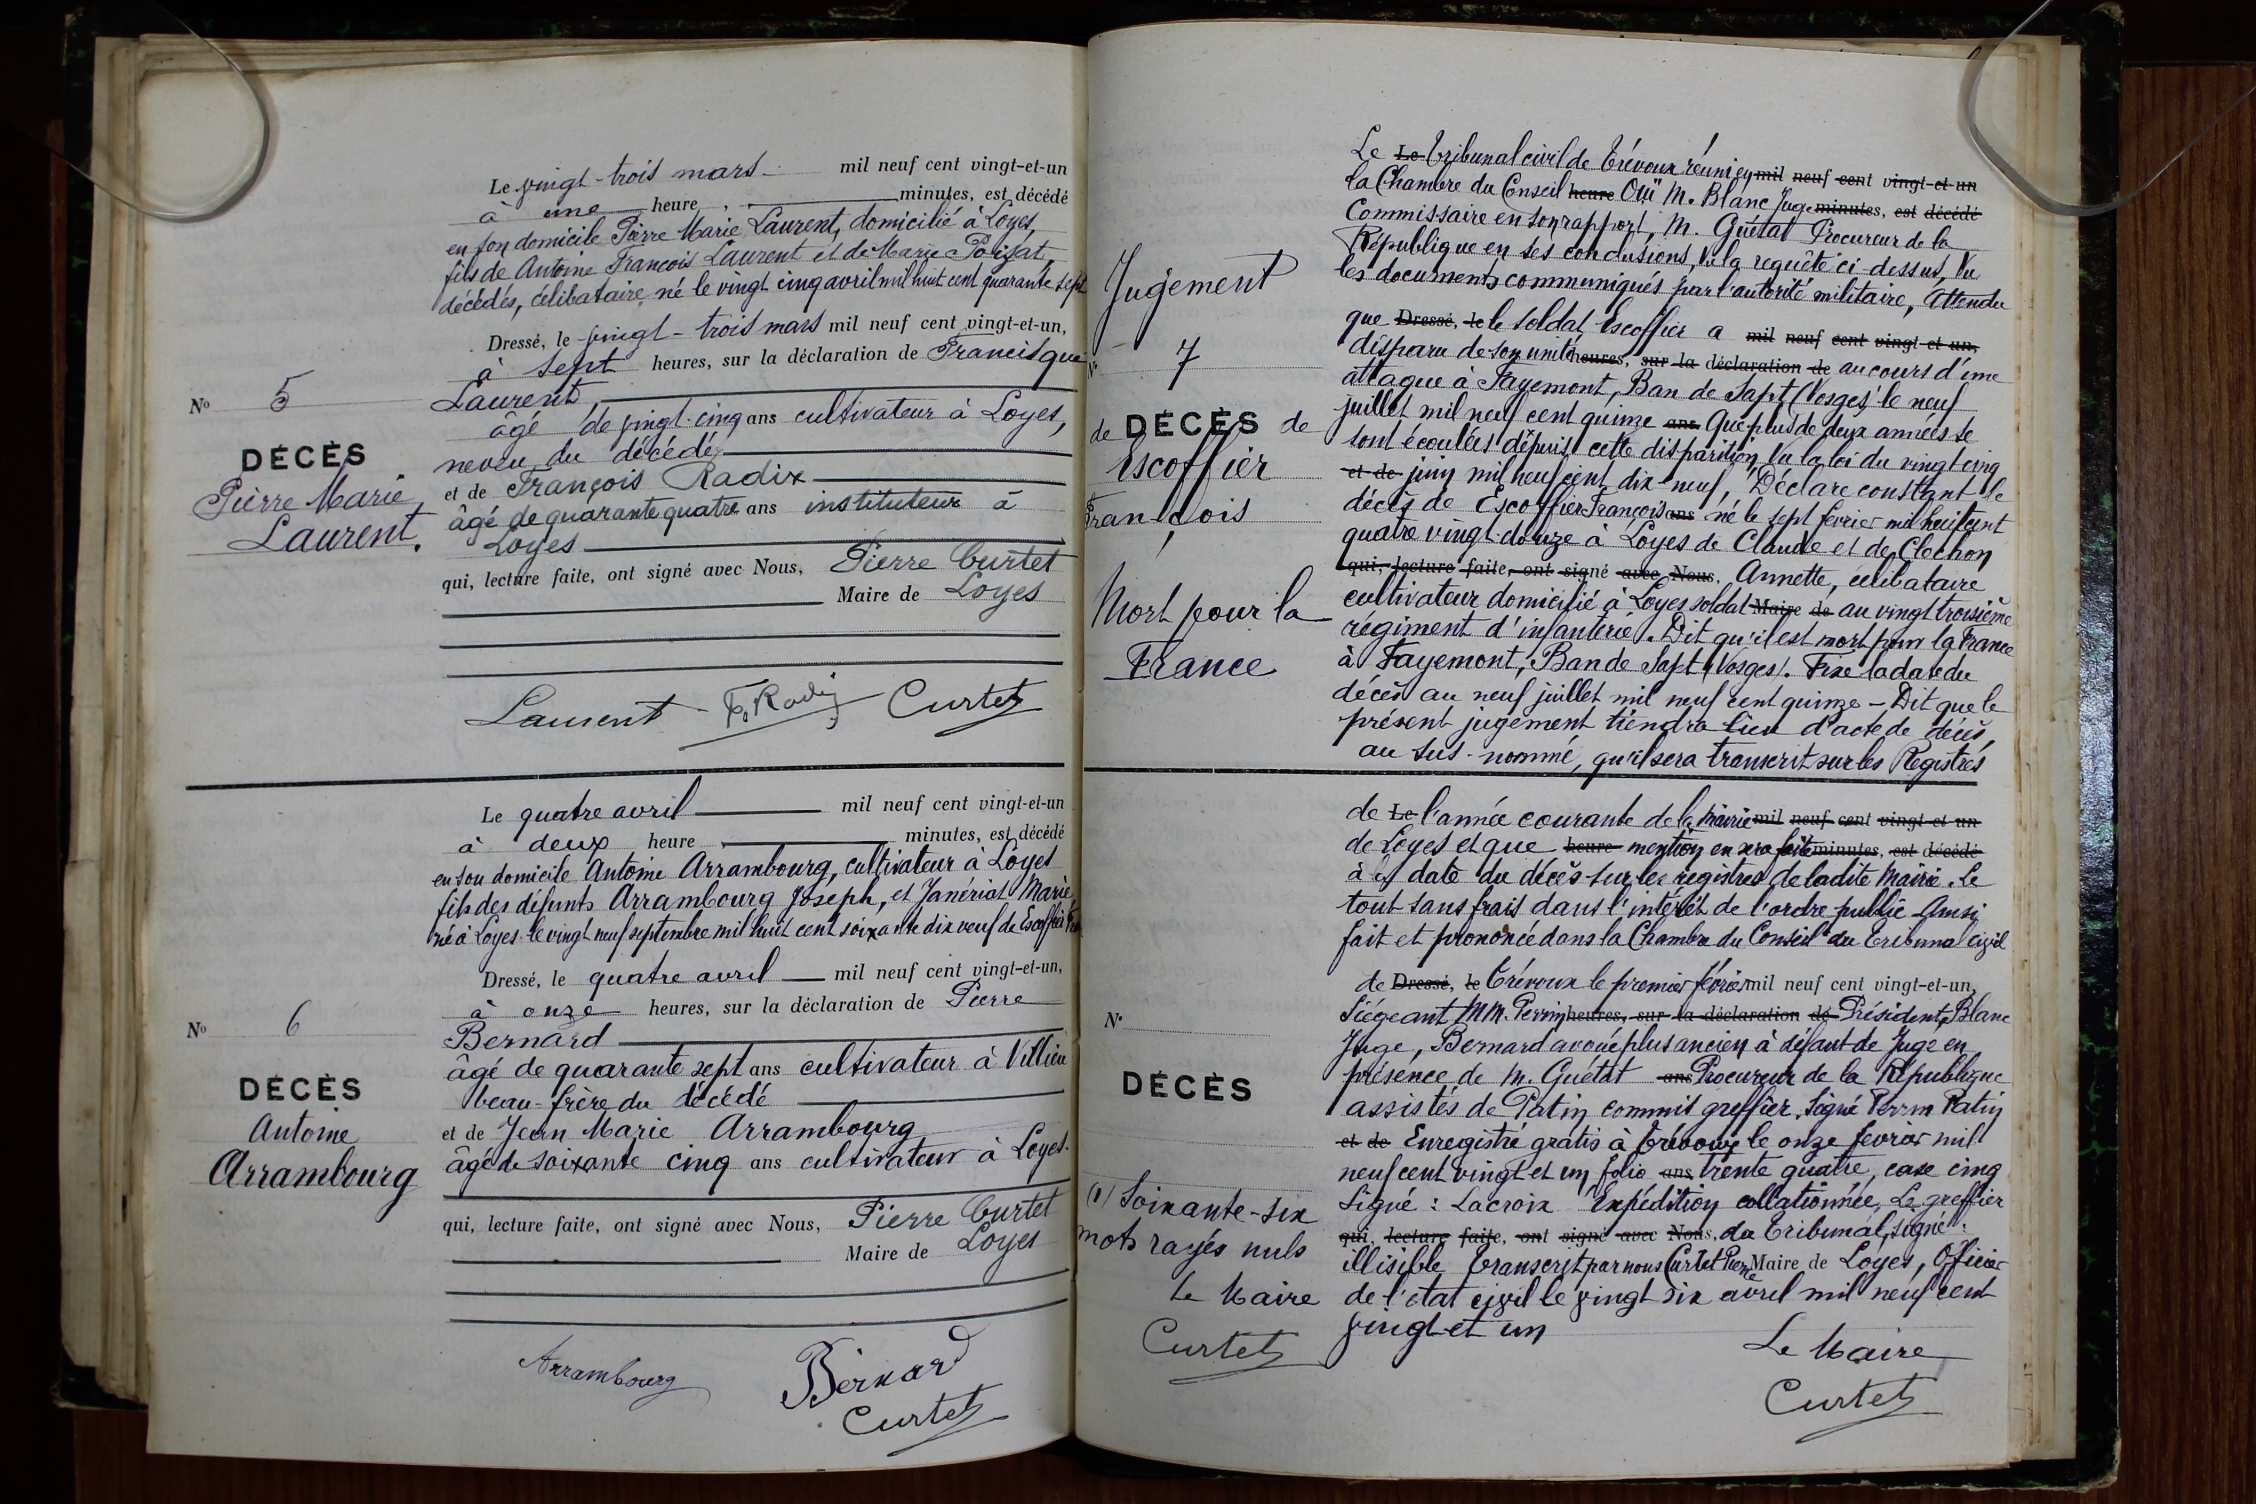 Le vingt-trois mars mil neuf cent vingt-et-un
à une heure, minutes, est décédé
en son domicile Pierre Marie Laurent, domicilié à Loyes,
fils de Antoine François Laurent et de Marie Polizat,
décédés, célibataire, né le vingt cinq avril mil huit cent quarante sept
Dressé, le vingt-trois mars mil neuf cent vingt-et-un,
à sept heures, sur la déclaration de Francisque
Laurent
âgé de vingt-cinq ans cultivateur à Loyes,
neveu du décédé
et de François Radix
âgé de quarante quatre ans instituteur à
Loyes
qui, lecture faite, ont signé avec Nous, Pierre Curtet
Maire de Loyes
Nº 5
DÉCÈS
Pierre Marie
Laurent.
Laurent F. Radix Curtet
Le quatre avril mil neuf cent vingt-et-un
à deux heure, minutes, est décédé
en son domicile Antoine Arrambourg, cultivateur à Loyes
fils des défunts Arrambourg Joseph, et Janériat Marie,
né à Loyes le vingt neuf septembre mil huit cent soixante dix neuf de Escoffier
Dressé, le quatre avril mil neuf cent vingt-et-un,
à onze heures, sur la déclaration de Pierre
Bernard
âgé de quarante sept ans cultivateur à Villieu
beau-frère du décédé
et de Jean Marie Arrambourg
âgé de soixante cinq ans cultivateur à Loyes.
qui, lecture faite, ont signé avec Nous, Pierre Curtet
Maire de Loyes
Nº 6
DÉCÈS
Antoine
Arrambourg
Arrambourg Bernard
Curtet
Jugement
Nº 7
de DÉCÈS de
Escoffier
François
Mort pour la
France
Le Le Tribunal civil de Trévoux réuni en mil neuf cent vingt-et-un
la Chambre du Conseil heure Ouï M. Blanc Juge minutes, est décédé
Commissaire en son rapport, M. Guétat Procureur de la
République en ses conclusions, Vu la requête ci-dessus, Vu
les documents communiqués par l'autorité militaire, Attendu
que Dressé, le le soldat Escoffier a mil neuf cent vingt-et-un,
disparu de son unité heures, sur la déclaration de au cours d'une
attaque à Fayemont, Ban de Sapt (Vosges) le neuf
juillet mil neuf cent quinze ans Que plus de deux années se
sont écoulées depuis cette disparition, Vu la loi du vingt cinq
et de juin mil neuf cent dix-neuf, Déclare constant le
décès de Escoffier François ans né le sept février mil huit cent
quatre vingt-douze à Loyes de Claude et de Clechon
qui, lecture faite, ont signé avec Nous, Annette, célibataire
cultivateur domicilié à Loyes soldat Maire de au vingt troisième
régiment d'infanterie. Dit qu'il est mort pour la France
à Fayemont, Ban de Sapt (Vosges). Fixe la date du
décès au neuf juillet mil neuf cent quinze – Dit que le
présent jugement tiendra lieu d'acte de décès,
au sus-nommé, qu'il sera transcrit sur les Registres
de Le l'année courante de la Mairie mil neuf cent vingt-et-un
de Loyes et que heure mention en sera faite minutes, est décédé
à la date du décès sur les registres de ladite Mairie. Le
tout sans frais dans l'intérêt de l'ordre public Ainsi
fait et prononcé dans la Chambre du Conseil du Tribunal civil
de Dressé, le Trévoux le premier février mil neuf cent vingt-et-un,
Siégeant MM. Perrin heures, sur la déclaration de Président, Blanc
Juge, Bernard avoué plus ancien à défaut de Juge en
présence de M. Guétat ans Procureur de la République
assistés de Patin commis greffier. Signé Perrin Patin
et de Enregistré gratis à Trévoux le onze février mil
neuf cent vingt et un folio ans trente quatre, case cinq
Signé : Lacroix Expédition collationnée, Le greffier
qui, lecture faite, ont signé avec Nous, du Tribunal, signé :
illisible Transcrit par nous Curtet Pierre Maire de Loyes, Officier
de l'état civil le vingt six avril mil neuf cent
vingt-et un
Le Maire
Curtet
Nº
DÉCÈS
(1) Soixante-six
mots rayés nuls
Le Maire
Curtet